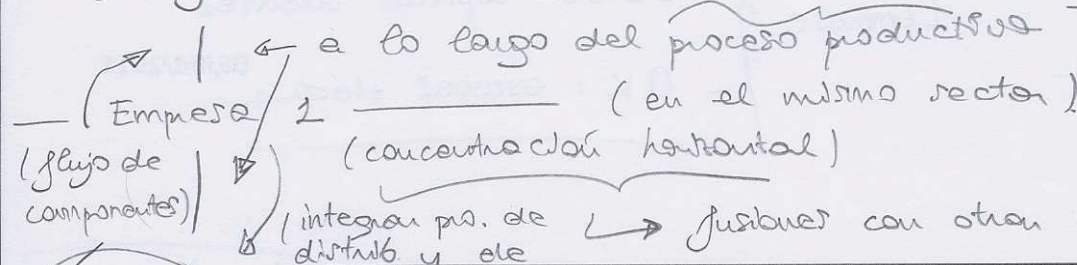 a lo largo del proceso productivo
Empresa 1 (en el mismo sector)
(flujo de componentes)
(concentración horizontal)
(integrar pro. de
distrib. y de
fusiones con otra